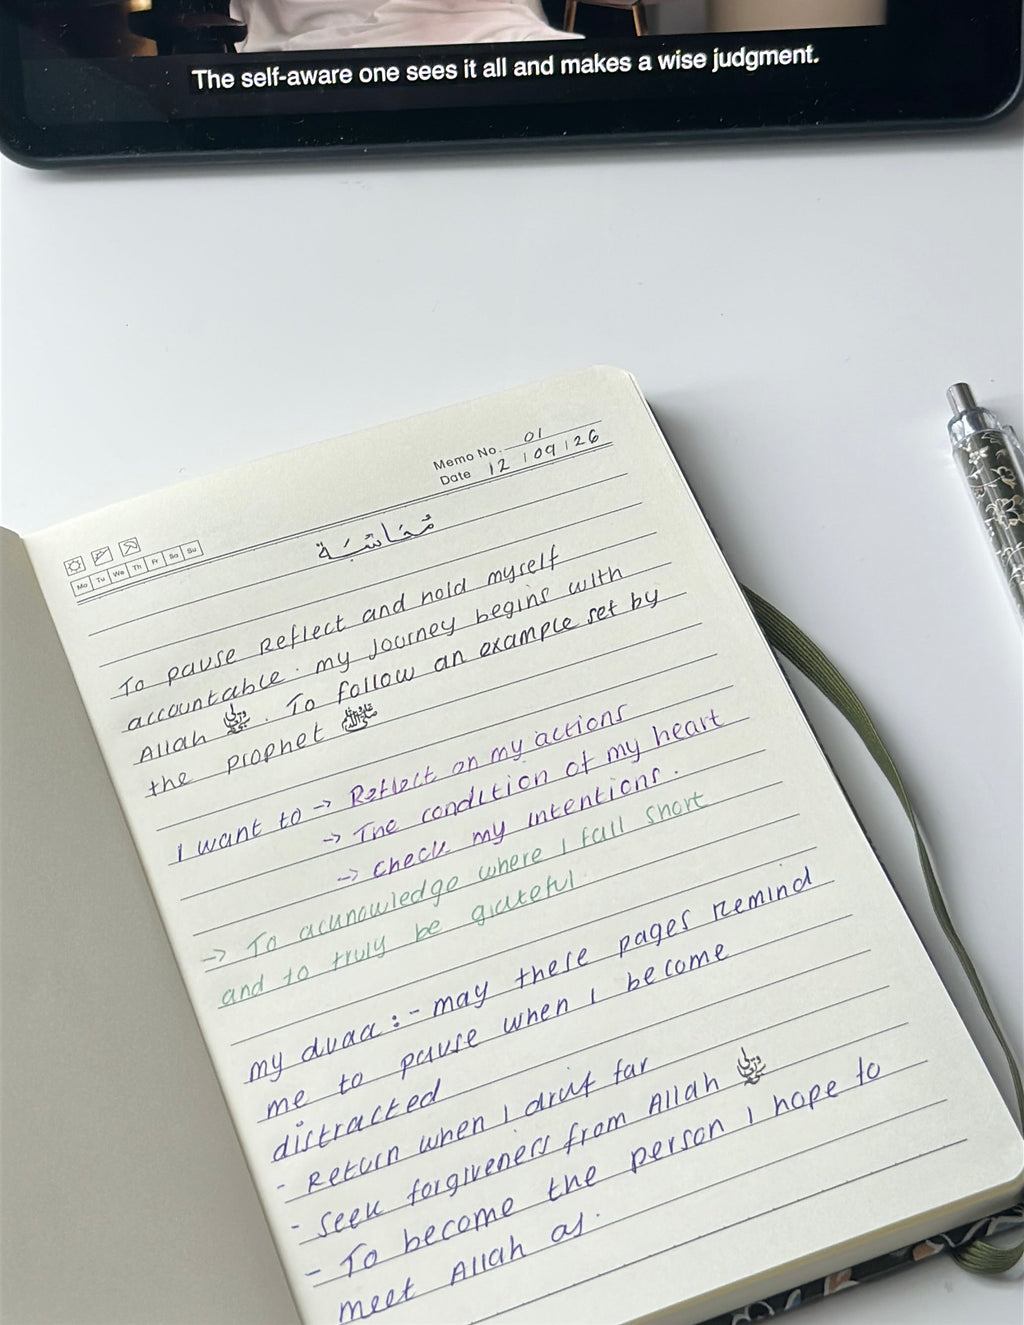 The self-aware one sees it all and makes a wise judgment.
Memo No. 01
Date 12/09/26
Mo Tu We Th Fr Sa Su
مُحَاسَبَة
To pause Reflect and hold myself
accountable. my Journey begins with
Allah ﷻ. To follow an example set by
the prophet ﷺ
I want to → Reflect on my actions
→ The condition of my heart
→ check my intentions.
→ To acknowledge where I fall short
and to truly be grateful.
my duaa :- may these pages remind
me to pause when I become
distracted
- Return when I drift far
- seek forgiveness from Allah ﷻ
- To become the person I hope to
meet Allah as.